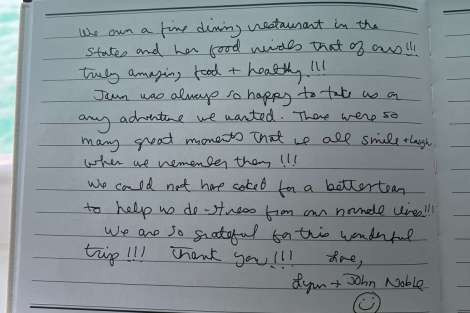 We own a fine dining restaurant in the
States and her food rivals that of ours!!!
Truly amazing food + healthy!!!
was always so happy to take us on
any adventure we wanted. There were so
many great moments that we all smile + laugh
when we remember them!!!
We could not have asked for a better team
to help us de-stress from our normal lives!!!
We are so grateful for this wonderful
trip!!! Thank you!!! Love,
Lynn + John Noble